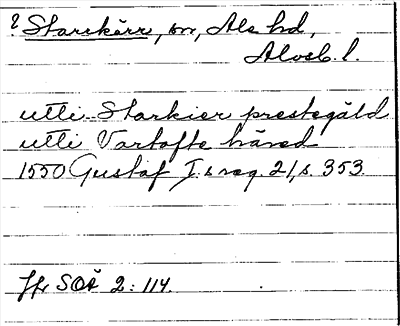 ? Starrkärr, sn, Ale hd,
Älvsb. l.
utti Starkier prestegäld
utti Vartofte häred
1550 Gustaf I:s reg. 21, s. 353.
Jfr SOÄ 2: 114.